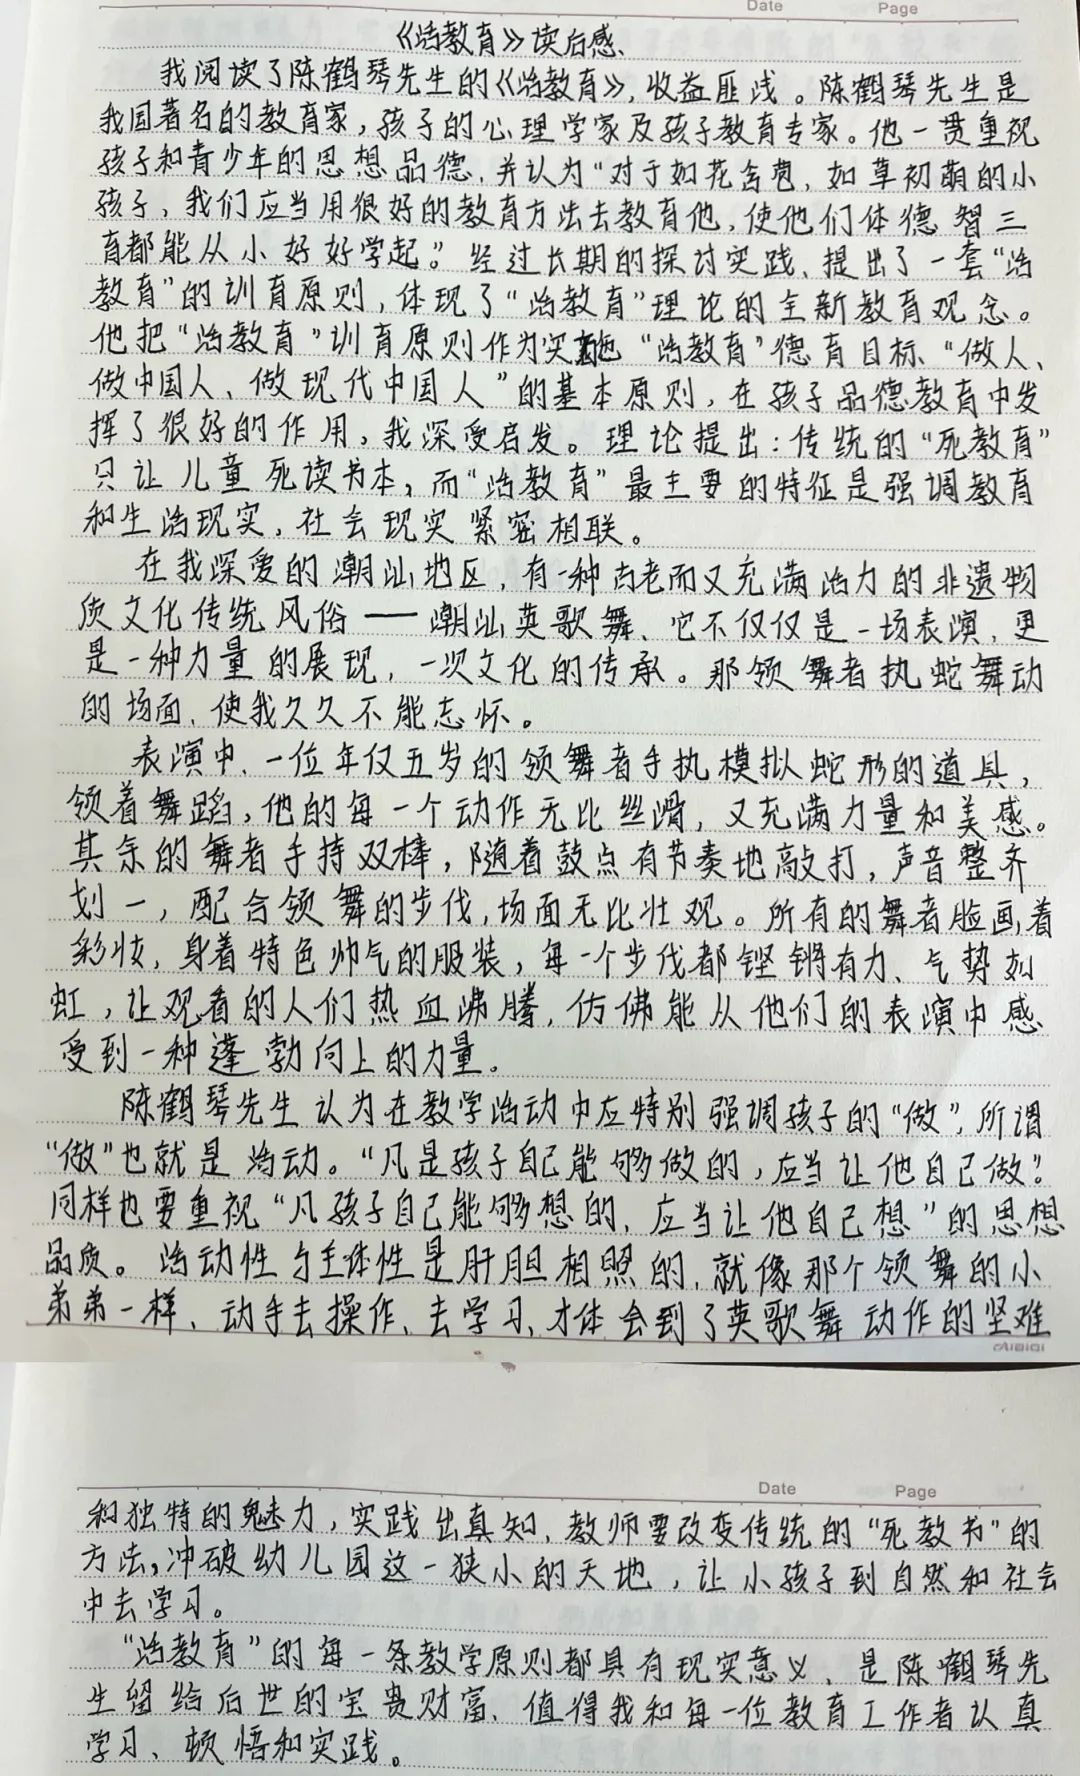 Date Page
《活教育》读后感、
我阅读了陈鹤琴先生的《活教育》，收益匪浅。陈鹤琴先生是
我国著名的教育家，孩子的心理学家及孩子教育专家。他一贯重视
孩子和青少年的思想品德，并认为“对于如花含苞，如草初萌的小
孩子，我们应当用很好的教育方法去教育他，使他们体德智三
育都能从小好好学起。”经过长期的探讨实践，提出了一套“活
教育”的训育原则，体现了“活教育”理论的全新教育观念。
他把“活教育”训育原则作为实施“活教育”德育目标、“做人、
做中国人、做现代中国人”的基本原则，在孩子品德教育中发
挥了很好的作用，我深受启发。理论提出：传统的“死教育”
只让儿童死读书本，而“活教育”最主要的特征是强调教育
和生活现实，社会现实紧密相联。
在我深爱的潮汕地区，有一种古老而又充满活力的非遗物
质文化传统风俗——潮汕英歌舞、它不仅仅是一场表演，更
是一种力量的展现，一次文化的传承。那领舞者执蛇舞动
的场面，使我久久不能忘怀。
表演中，一位年仅五岁的领舞者手执模拟蛇形的道具，
领着舞蹈，他的每一个动作无比丝滑，又充满力量和美感。
其余的舞者手持双棒，随着鼓点有节奏地敲打，声音整齐
划一，配合领舞的步伐，场面无比壮观。所有的舞者脸画着
彩妆，身着特色帅气的服装，每一个步伐都铿锵有力、气势如
虹，让观看的人们热血沸腾，仿佛能从他们的表演中感
受到一种蓬勃向上的力量。
陈鹤琴先生认为在教学活动中应特别强调孩子的“做”，所谓
“做”也就是活动。“凡是孩子自己能够做的，应当让他自己做”
同样也要重视“凡孩子自己能够想的，应当让他自己想”的思想
品质。活动性与主体性是肝胆相照的，就像那个领舞的小
弟弟一样、动手去操作、去学习、才体会到了英歌舞动作的坚难
MIBIQI
Date Page
和独特的魅力，实践出真知，教师要改变传统的“死教书”的
方法，冲破幼儿园这一狭小的天地，让小孩子到自然和社会
中去学习。
“活教育”的每一条教学原则都具有现实意义，是陈鹤琴先
生留给后世的宝贵财富、值得我和每一位教育工作者认真
学习、顿悟和实践。